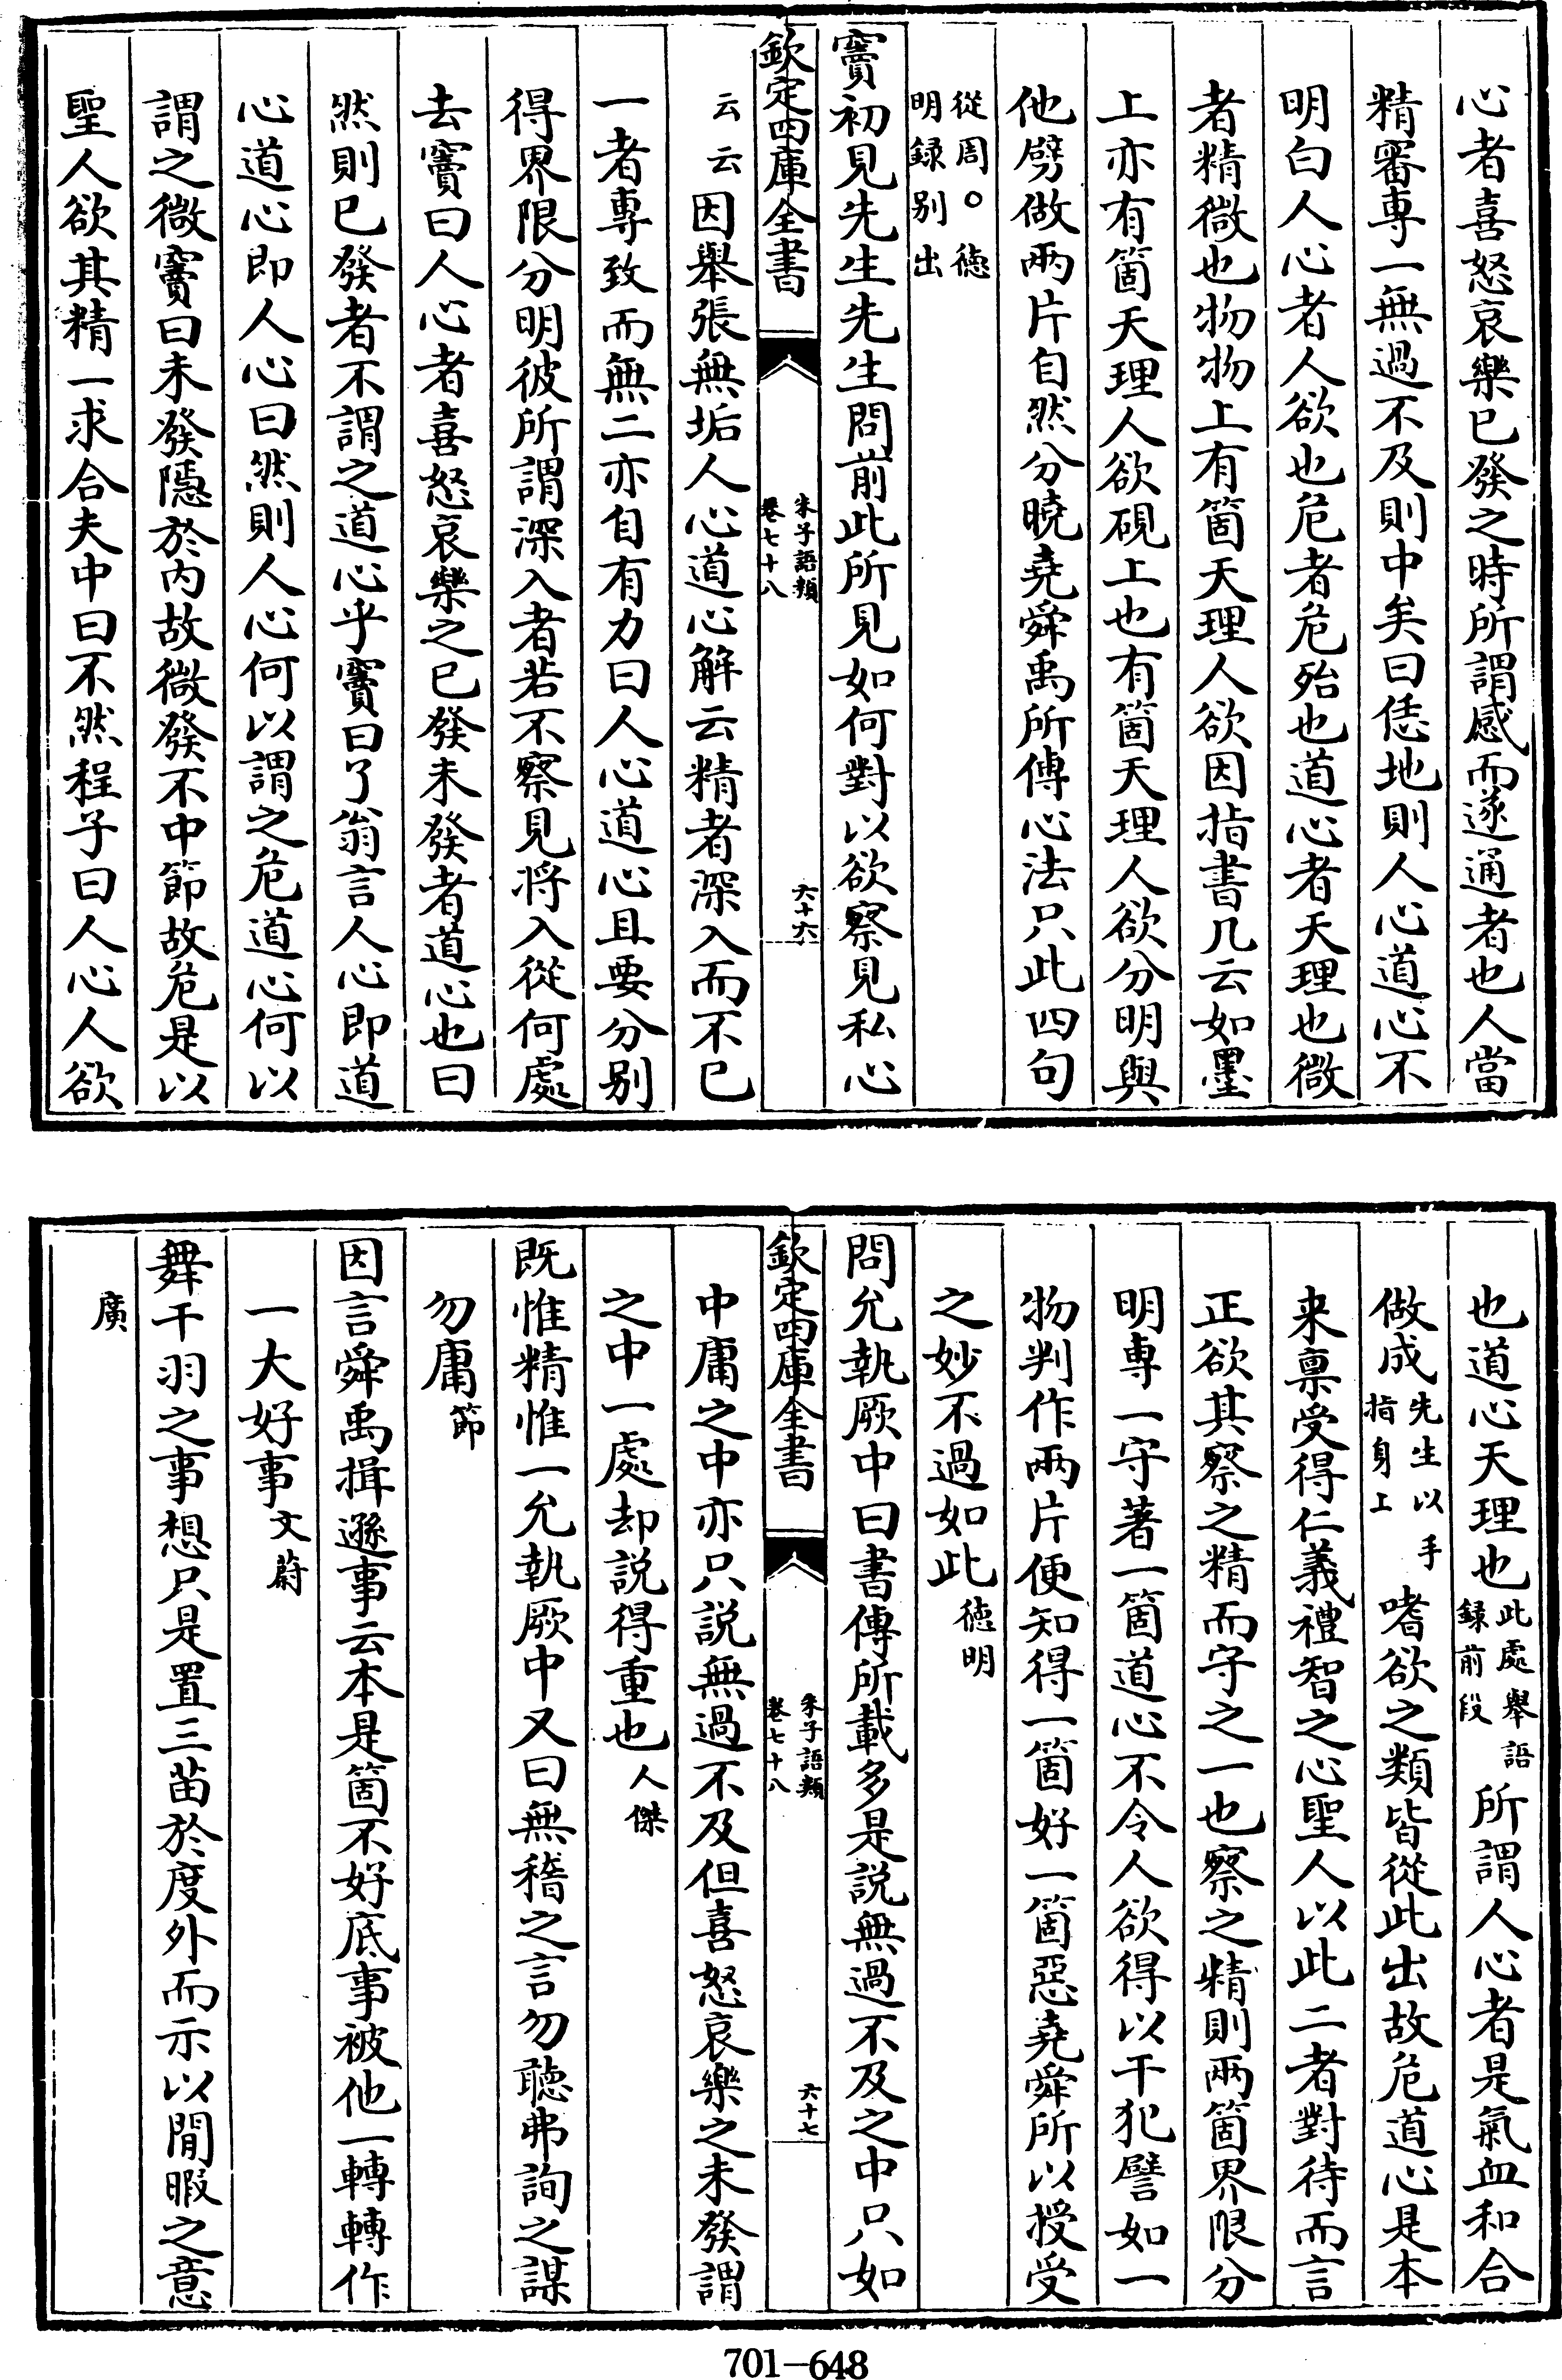 心者喜怒哀樂已發之時所謂感而遂通者也人當
精審專一無過不及則中矣曰恁地則人心道心不
明白人心者人欲也危者危殆也道心者天理也微
者精微也物物上有箇天理人欲因指書几云如墨
上亦有箇天理人欲硯上也有箇天理人欲分明與
他劈做兩片自然分曉堯舜禹所傳心法只此四句
從周○德
明録别出
竇初見先生先生問前此所見如何對以欲察見私心
欽定四庫全書
朱子語類
卷七十八
六十六
云云因舉張無垢人心道心解云精者深入而不已
一者專致而無二亦自有力曰人心道心且要分别
得界限分明彼所謂深入者若不察見将入從何處
去竇曰人心者喜怒哀樂之已發未發者道心也曰
然則已發者不謂之道心乎竇曰了翁言人心即道
心道心即人心曰然則人心何以謂之危道心何以
謂之微竇曰未發隱於内故微發不中節故危是以
聖人欲其精一求合夫中曰不然程子曰人心人欲
也道心天理也此處舉語録前段所謂人心者是氣血和合
做成先生以手指身上嗜欲之類皆從此出故危道心是本
来禀受得仁義禮智之心聖人以此二者對待而言
正欲其察之精而守之一也察之精則兩箇界限分
明専一守著一箇道心不令人欲得以干犯譬如一
物判作兩片便知得一箇好一箇惡堯舜所以授受
之妙不過如此德明
問允執厥中曰書傳所載多是説無過不及之中只如
欽定四庫全書
朱子語類
卷七十八
六十七
中庸之中亦只説無過不及但喜怒哀樂之未發謂
之中一處却説得重也人傑
既惟精惟一允執厥中又曰無稽之言勿聽弗詢之謀
勿庸節
因言舜禹揖遜事云本是箇不好底事被他一轉轉作
一大好事文蔚
舞干羽之事想只是置三苗於度外而示以閒暇之意
廣
701-648